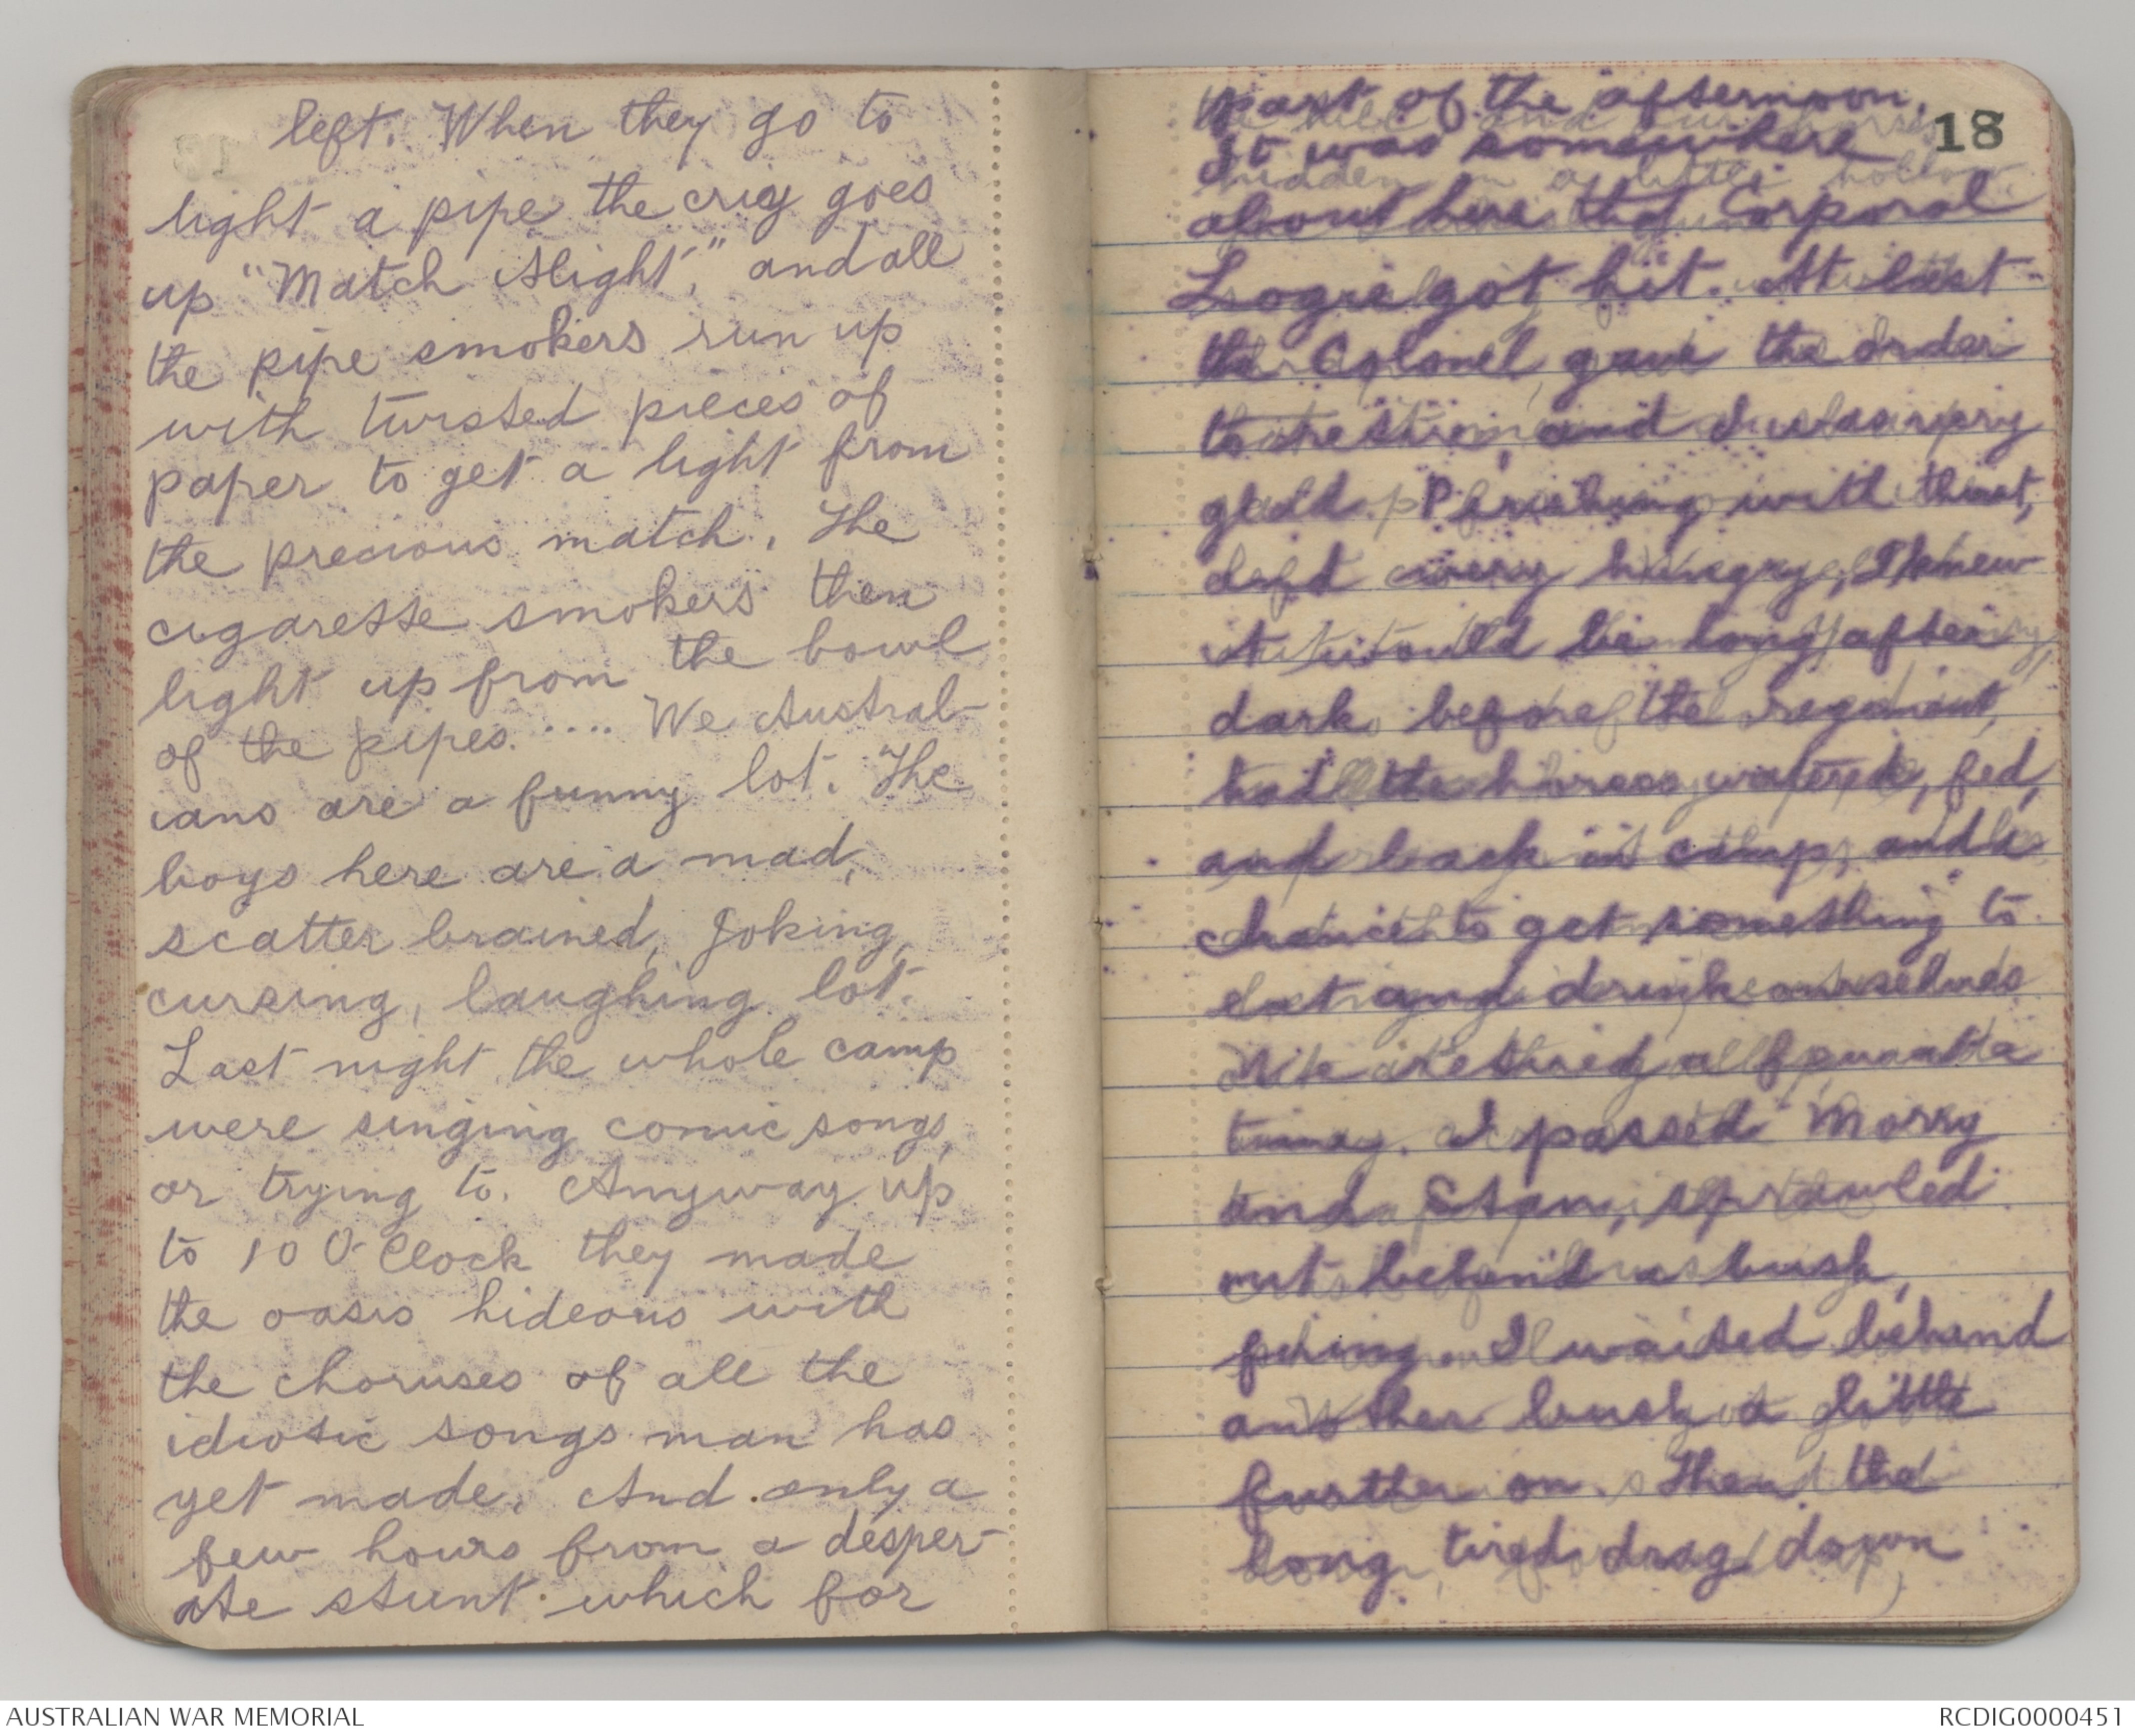 left. When they go to
light a pipe the criy goes
up "Match Alight," and all
the pipe smokers run up
with twisted pieces of
paper to get a light from
the precious match. The
cigarette smokers then
light up from the bowl
of the pipes. .... We Austral-
ians are a funny lot. The
boys here are a mad,
scatter brained, joking,
cursing, laughing lot.
Last night the whole camp
were singing comic songs,
or trying to. Anyway up
to 10 O'Clock they made
the oasis hideous with
the choruses of all the
idiotic songs man has
yet made. And only a
few hours from a desper-
ate stunt which for
18
part of the afternoon.
It was somewhere
about here that Corporal
Logie got hit. At last
the Colonel gave the order
to retire, and I was very
glad. Perishing with thirst,
and very hungry, I knew
it would be long after
dark before the regiment
had the horses watered, fed,
and back in camp, and a
chance to get something to
eat and drink ourselves
We retired all
I passed Morry
and Stan, sprawled
out behind a bush,
firing. I waited behind
another bush a little
further on. Then the
long, tired drag down
AUSTRALIAN WAR MEMORIAL
RCDIG0000451